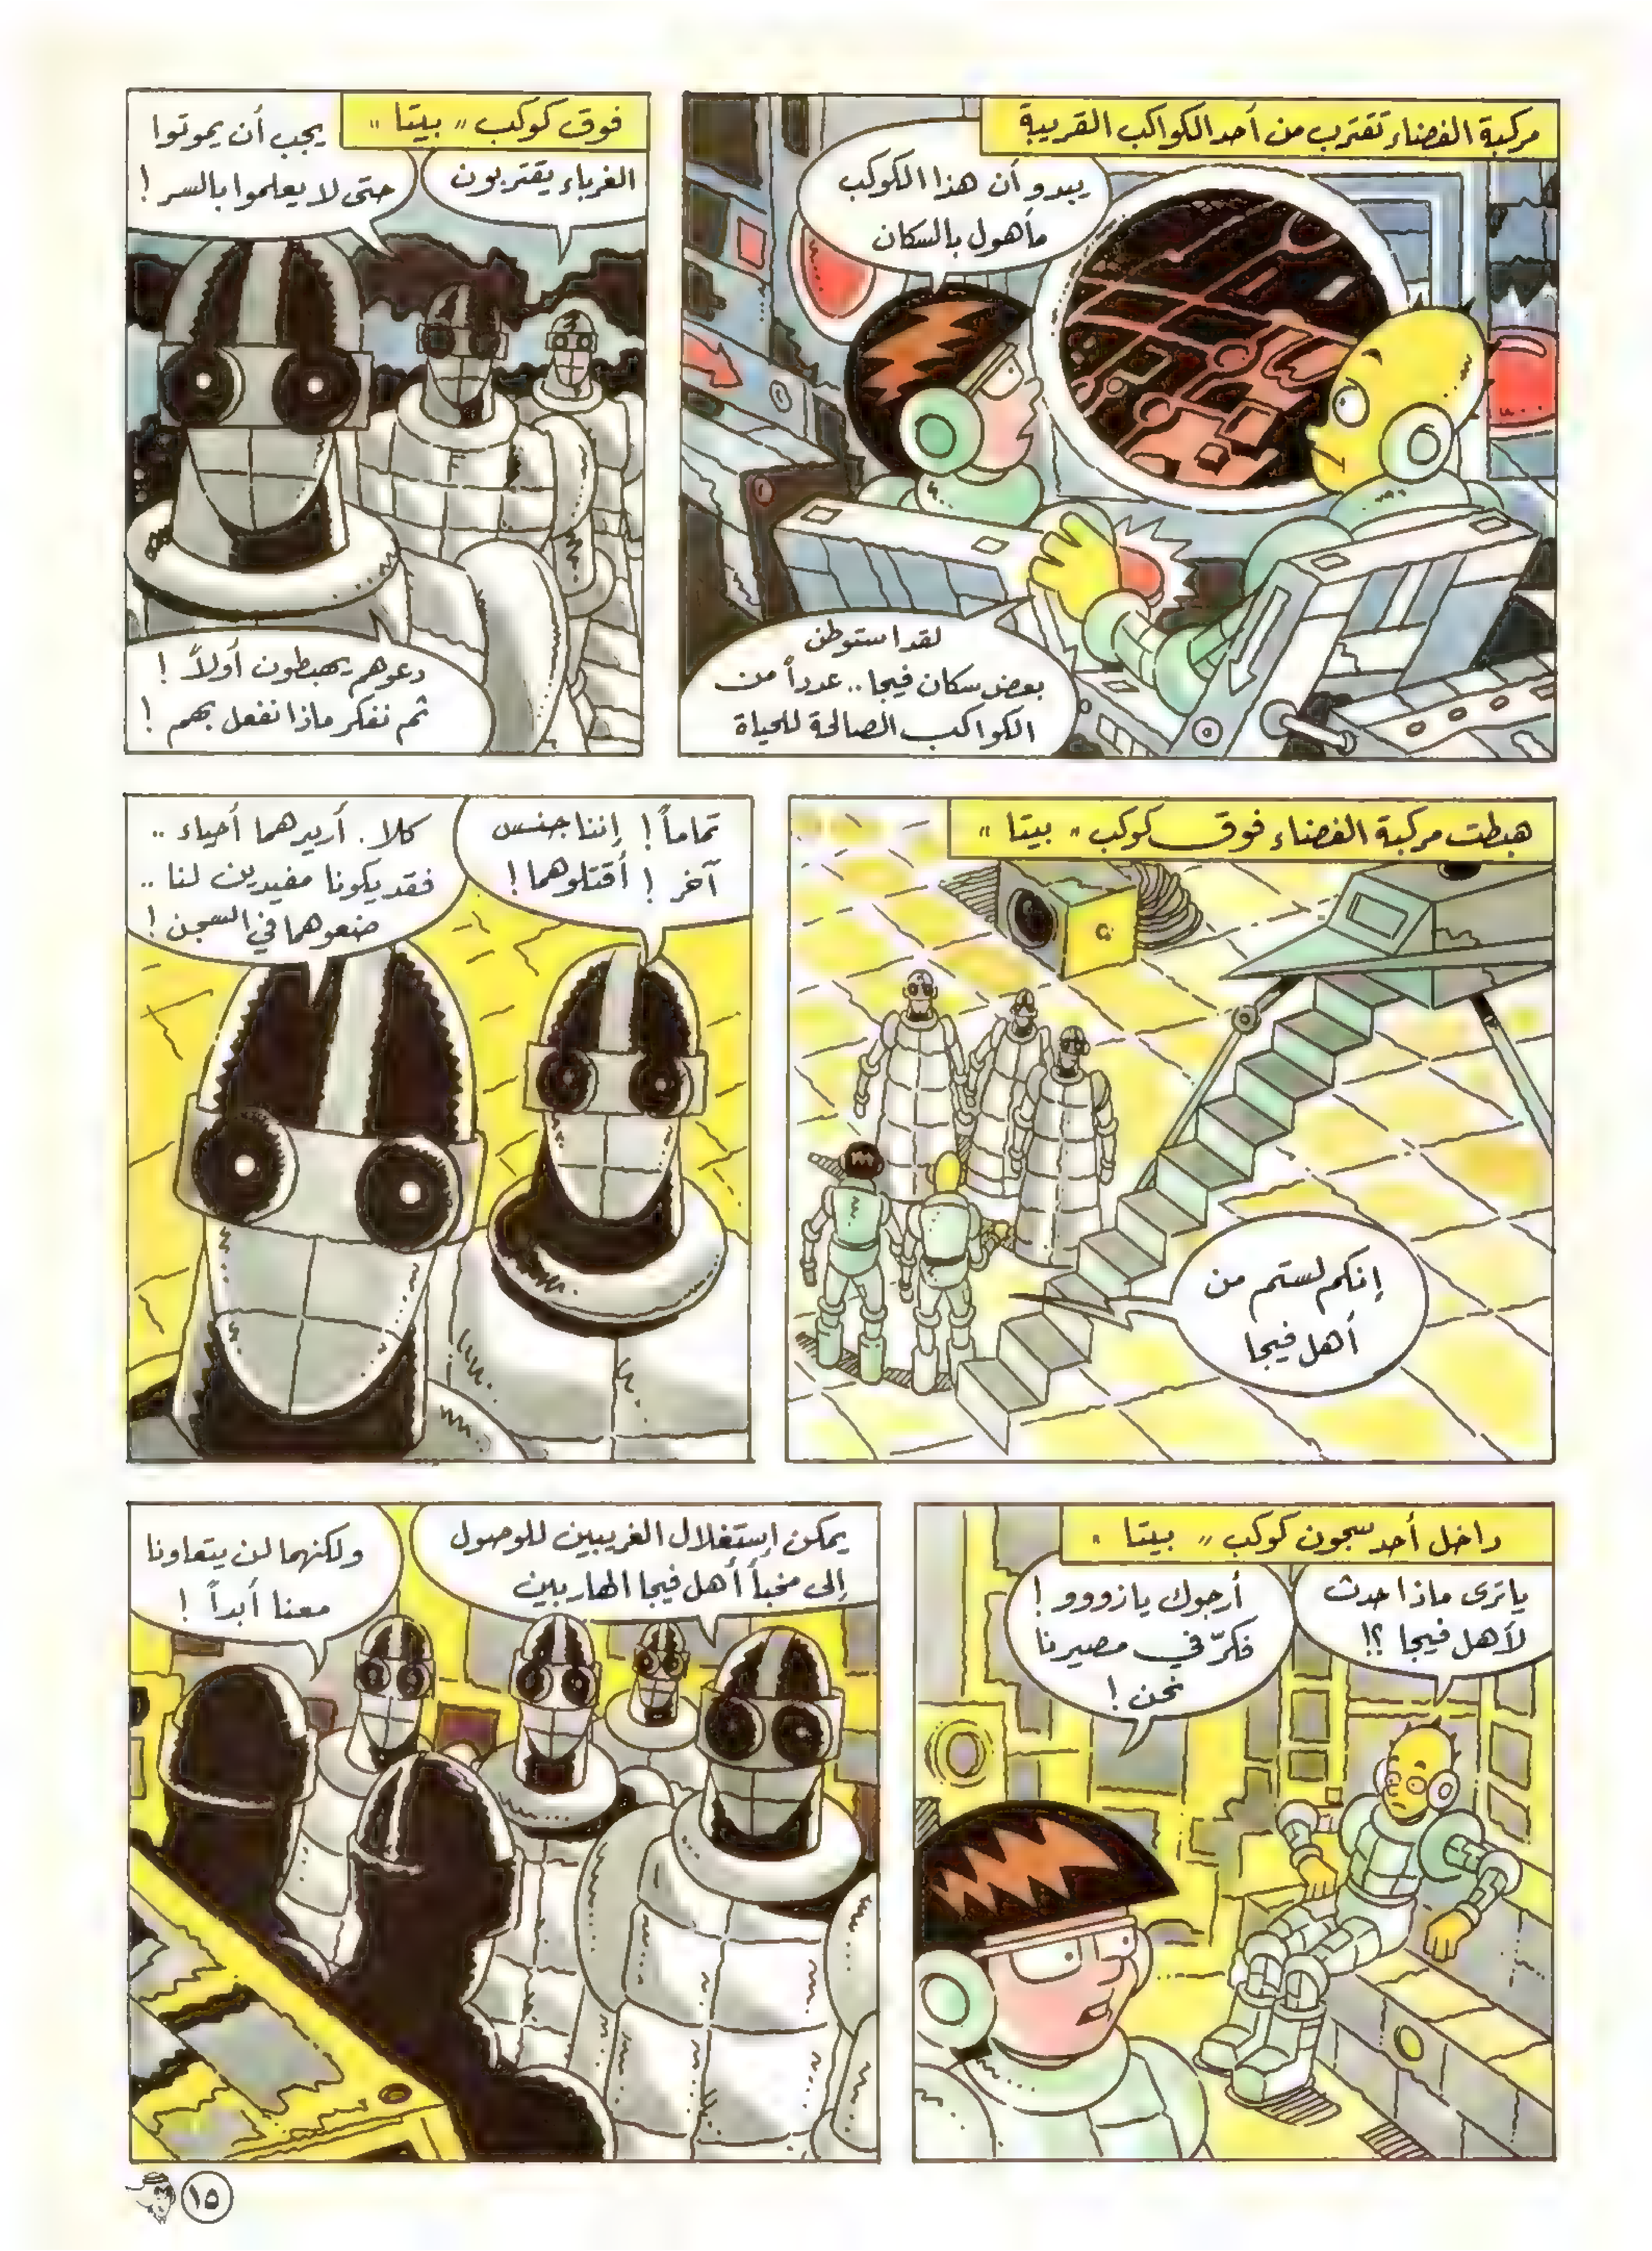 مركبة الفضاء تقترب من أحد الكواكب القريبة
يبدو أن هذا الكوكب
مأهول بالسكان
لقد استوطن
بعض سكان فيجا .. عدداً من
الكواكب الصالحة للحياة
فوق كوكب " بيتا "
الغرباء يقتربون
يجب أن يموتوا
حتى لا يعلموا بالسر !
دعوهم يهبطون أولاً !
ثم نفكر ماذا نفعل بهم !
هبطت مركبة الفضاء فوق كوكب " بيتا "
إنكم لستم من
أهل فيجا
تماماً ! إننا جنس
آخر ! أقتلوهما !
كلا . أريدهما أحياء ..
فقد يكونا مفيدين لنا ..
ضعوهما في السجن !
داخل أحد سجون كوكب " بيتا "
ياترى ماذا حدث
لأهل فيجا ؟!
أرجوك يا زووو !
فكرّ في مصيرنا
نحن !
يمكن إستغلال الغريبين للوصول
إلى مخبأ أهل فيجا الهاربين
ولكنهما لن يتعاونا
معنا أبداً !
١٥